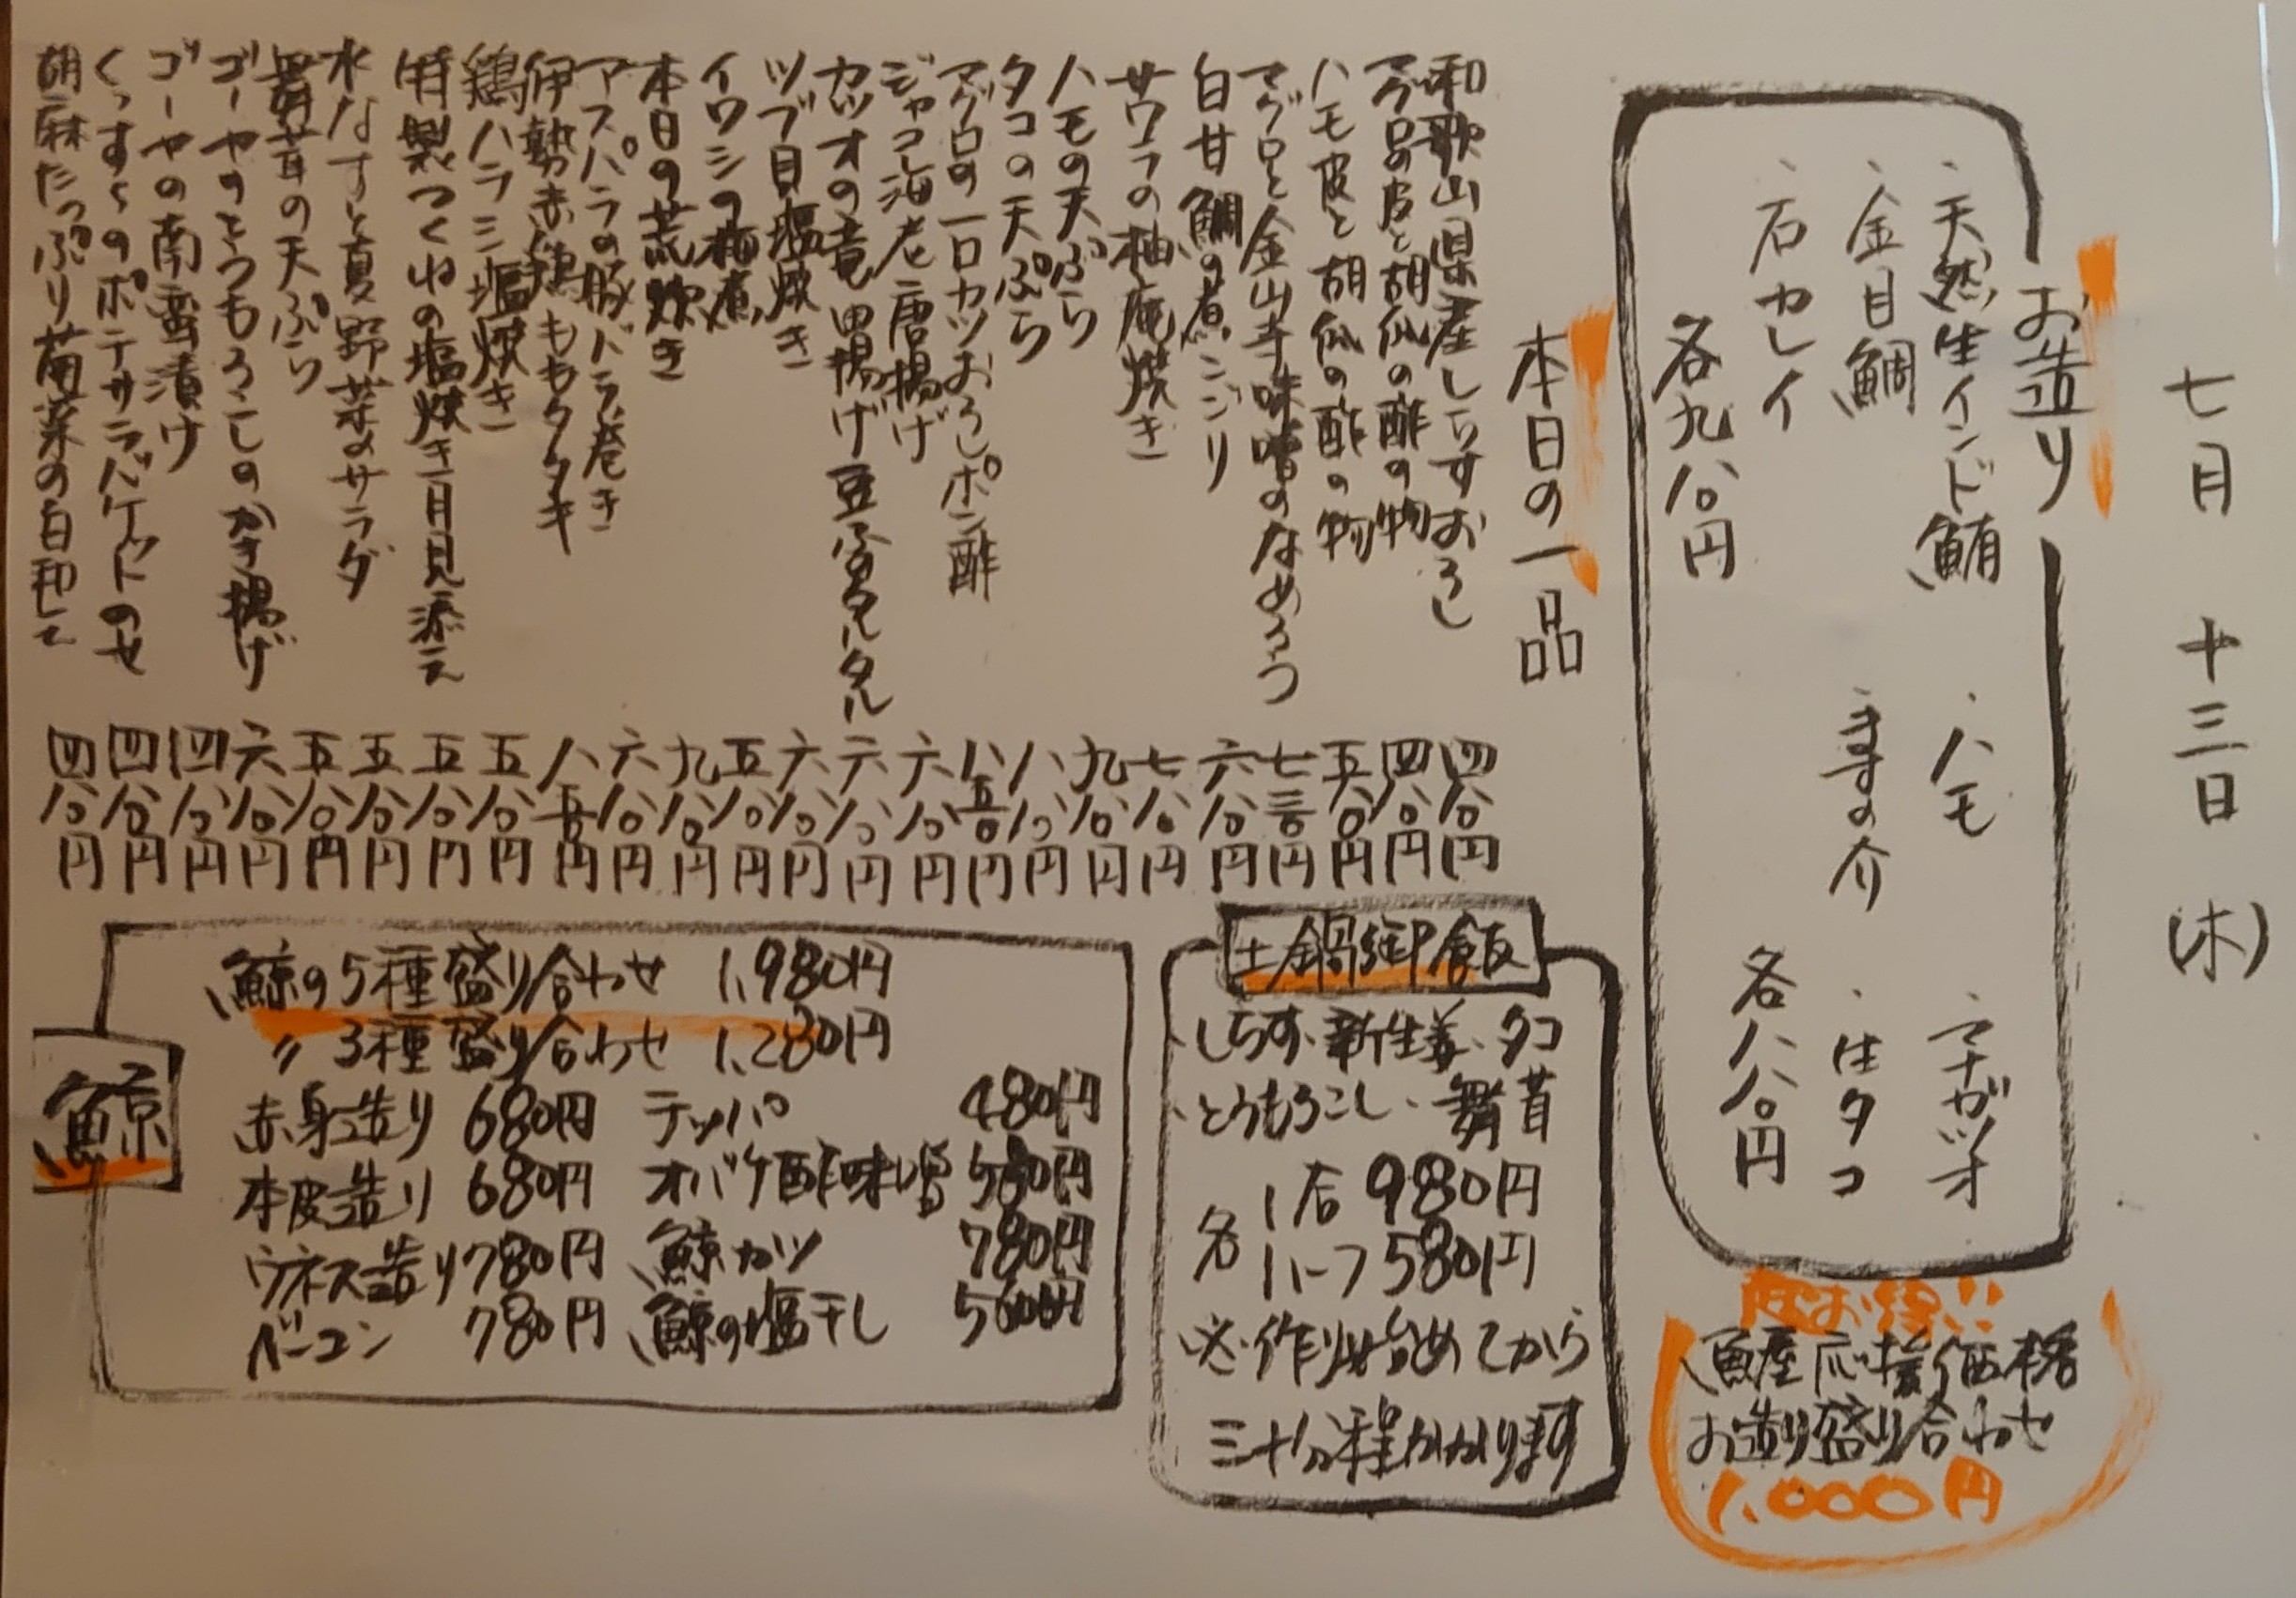 七月 十三日 (木)
お造り
・天然生インド鮪
・ハモ
・マナガツオ
・金目鯛
・ますの介
・生タコ
・石カレイ
各九八〇円
各八八〇円
お得!!
魚屋応援価格
お造り盛り合わせ
1,000円
本日の一品
和歌山県産しらすおろし 四八〇円
マグロの皮と胡瓜の酢の物 四八〇円
ハモ皮と胡瓜の酢の物 五八〇円
マグロと金山寺味噌のなめろう 七三〇円
白甘鯛の煮こごり 六八〇円
サワラの柚庵焼き 七八〇円
ハモの天ぷら 九八〇円
タコの天ぷら 八八〇円
マグロの一口カツおろしポン酢 八五〇円
ジャコ海老唐揚げ 六八〇円
カツオの竜田揚げ豆ふタルタル 六八〇円
ツブ貝塩焼き 六八〇円
イワシの梅煮 五八〇円
本日の荒炊き 九八〇円
アスパラの豚バラ巻き 六八〇円
伊勢赤鶏ももタタキ 八五〇円
鶏ハラミ塩焼き 五八〇円
特製つくねの塩焼き月見添え 五八〇円
水なすと夏野菜のサラダ 五八〇円
舞茸の天ぷら 五八〇円
ゴーヤのとうもろこしのかき揚げ 六八〇円
ゴーヤの南蛮漬け 四八〇円
くっすくのポテサラバケットのせ 四八〇円
胡麻たっぷり菊菜の白和え 四八〇円
土鍋御飯
・しらす・新生姜・タコ
・とうもろこし・舞茸
各
1合 980円
ハーフ 580円
※作り始めてから
三十分程かかります
鯨
鯨の5種盛り合わせ 1,980円
〃 3種盛り合わせ 1,280円
赤身造り 680円 テッパ 480円
本皮造り 680円 オバケ酢味噌 580円
ウネス造り 780円 鯨カツ 780円
ベーコン 780円 鯨の塩干し 560円